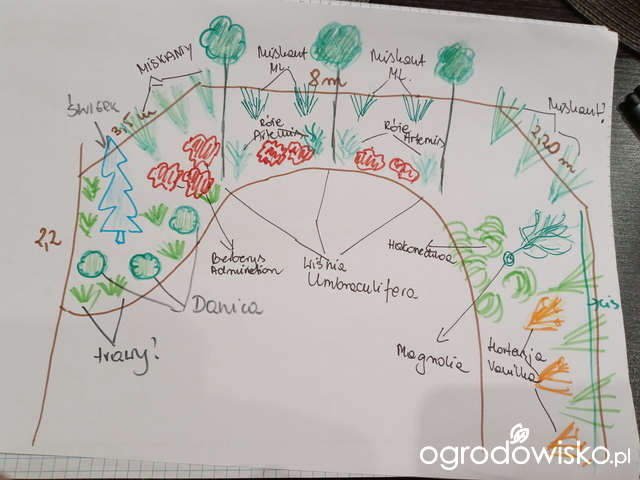 MISKANTY
Miskant
ML.
Miskant
ML.
8 m
Miskant?
ŚWIERK
3,5 m
2,20 m
Róże
Artemis
Róże
Artemis
2,2
Berberys
Admiration
Wiśnia
Umbraculifera
Hakonechloa
cis
Danica
trawy?
Magnolia
Hortensja
Vanilka
ogrodowisko.pl